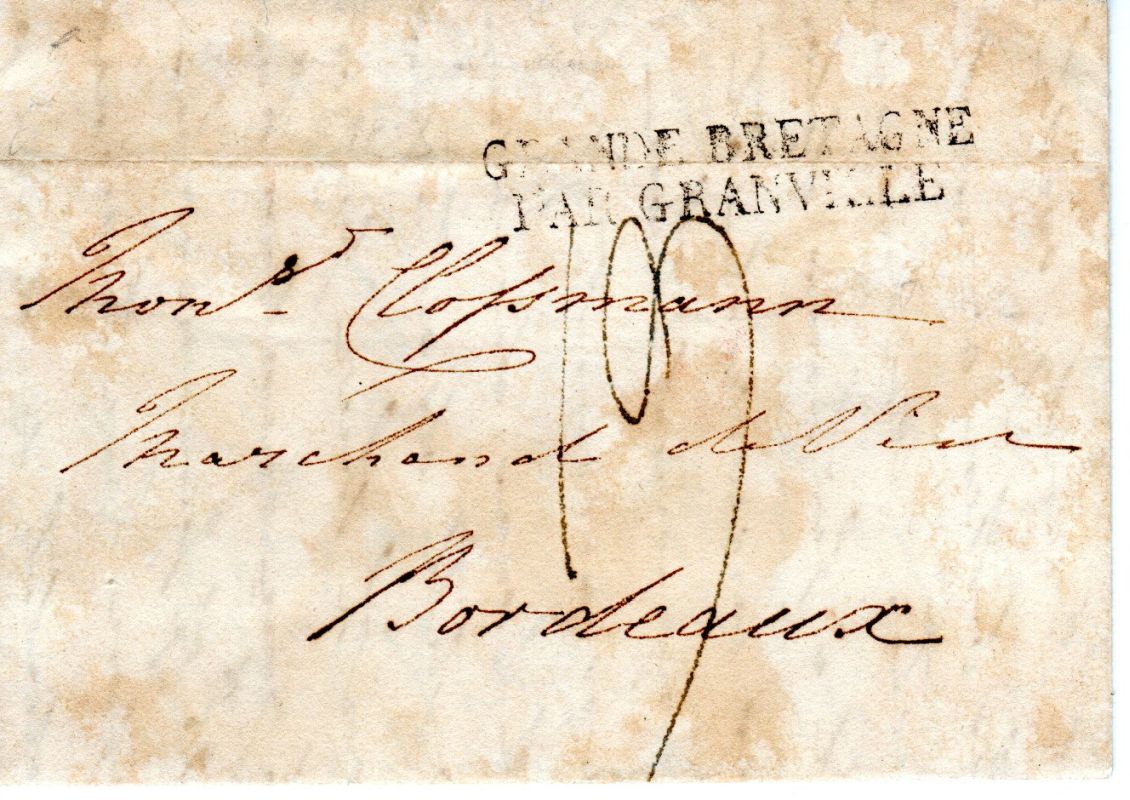 GRANDE BRETAGNE
PAR GRANVILLE
Monsr Clossmann
Marchand de Vin
Bordeaux
19